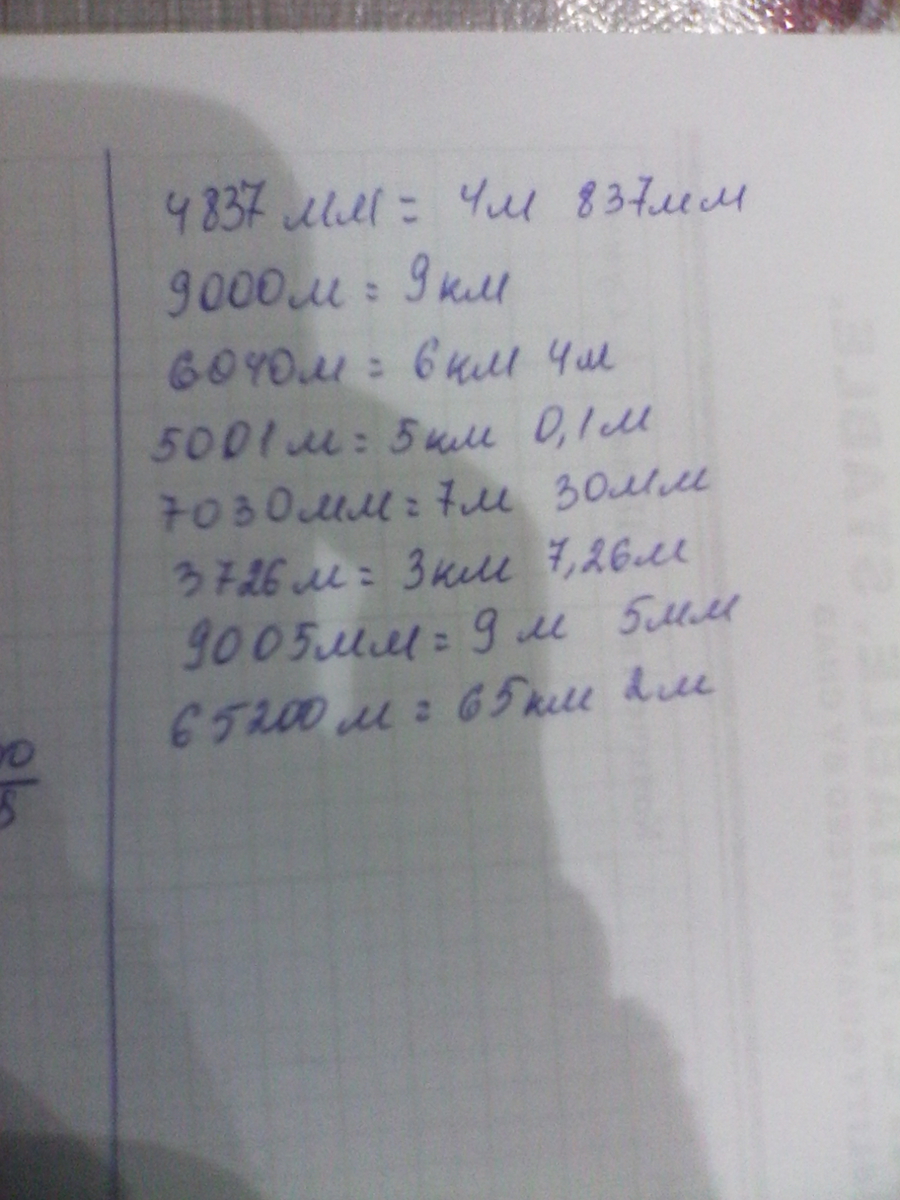 4837 мм = 4м 837мм
9000м = 9км
6040м = 6км 4м
5001м = 5км 0,1м
7030мм = 7м 30мм
3726м = 3км 7,26м
9005мм = 9м 5мм
65200м = 65км 2м
5